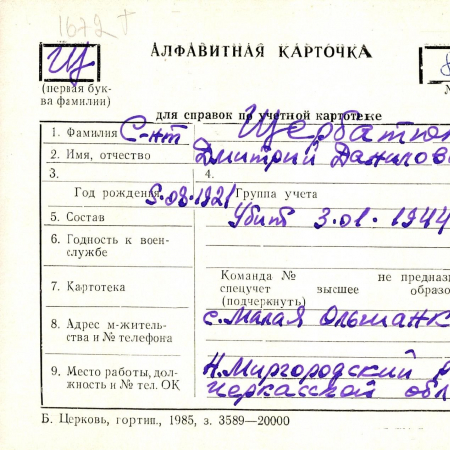 1672 †
Щ
АЛФАВИТНАЯ КАРТОЧКА
(первая бук-
ва фамилии)
для справок по учетной картотеке
1. Фамилия С-нт Щербатюк
2. Имя, отчество Дмитрий Данилов
3. 4.
Год рождения 9.08.1921 Группа учета
5. Состав Убит 3.01.1944
6. Годность к воен-
службе
Команда № не предназ
7. Картотека спецучет высшее образо
(подчеркнуть)
8. Адрес м-житель-
ства и № телефона с. Малая Ольшанк
9. Место работы, дол-
жность и № тел. ОК Н.Миргородский р
Черкасской обл
Б. Церковь, гортип., 1985, з. 3589—20000